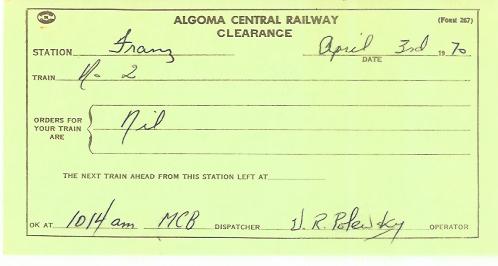 ALGOMA CENTRAL RAILWAY (Form 267)
CLEARANCE
STATION Franz April 3rd 1970
DATE
TRAIN No. 2
ORDERS FOR YOUR TRAIN ARE Nil
THE NEXT TRAIN AHEAD FROM THIS STATION LEFT AT
OK AT 1014 am MCB DISPATCHER W. R. OPERATOR